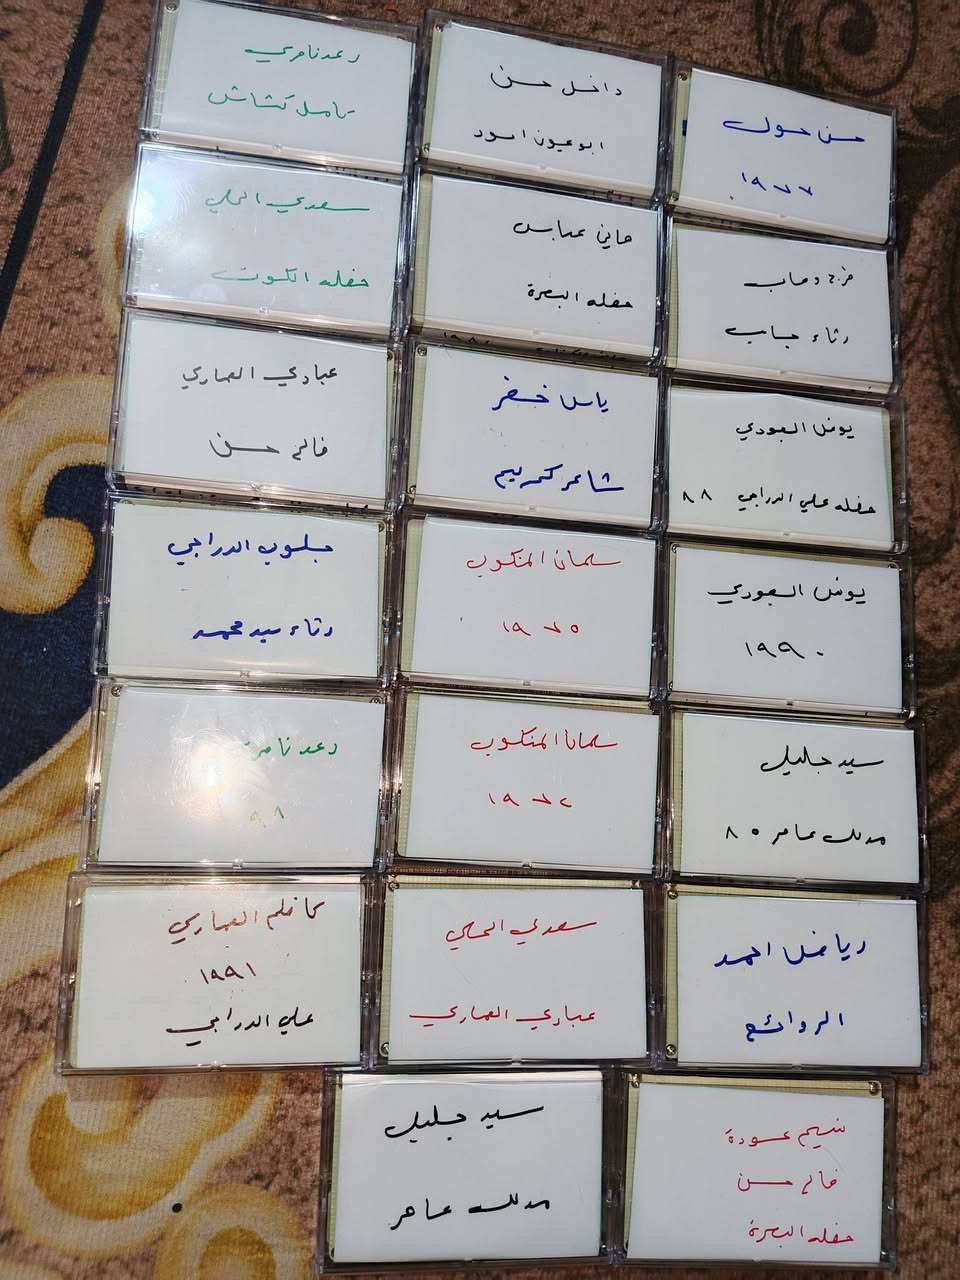 رعد نامري
كامل كشاش
داخل حسن
ابو عيون اسود
حسن حول
١٩٧٧
سعدي الحلي
حفله الكوت
هاني عباس
حفله البصرة
فرج وهاب
رثاء حساب
عبادي العماري
فالح حسن
ياس خضر
شاعر كمر يم
يونس العبودي
حفله علي الدراجي ٨٨
سلوب الدراجي
رثاء سيد محمد
سلمان المنكوب
١٩٧٥
يونس العبودي
١٩٩٠
رعد نامر
٩٨
سلمان المنكوب
١٩٧٢
سيد جليل
مدلل عامر ٨٥
كاظم العماري
١٩٩١
علي الدراجي
سعدي الحلي
عبادي العماري
رياض احمد
الروائع
سيد جليل
مدلل عامر
نسيم عودة
فالح حسن
حفله البصرة